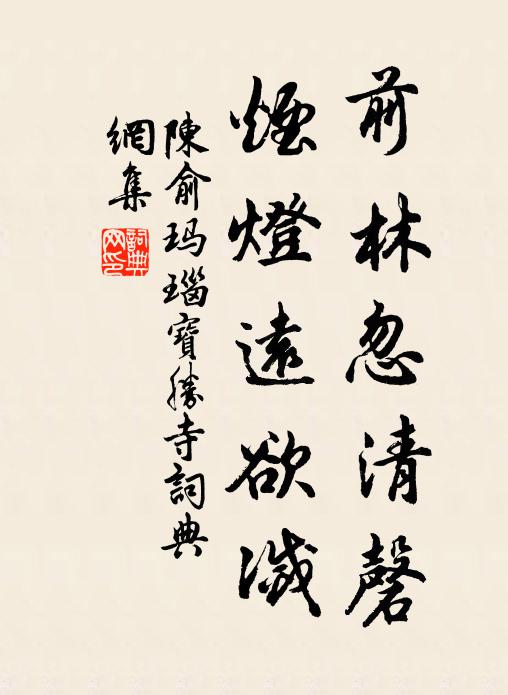 前林忽清磬
煙燈遠欲滅
陳俞玛瑙寶勝寺詞典
網集
詞典
网印